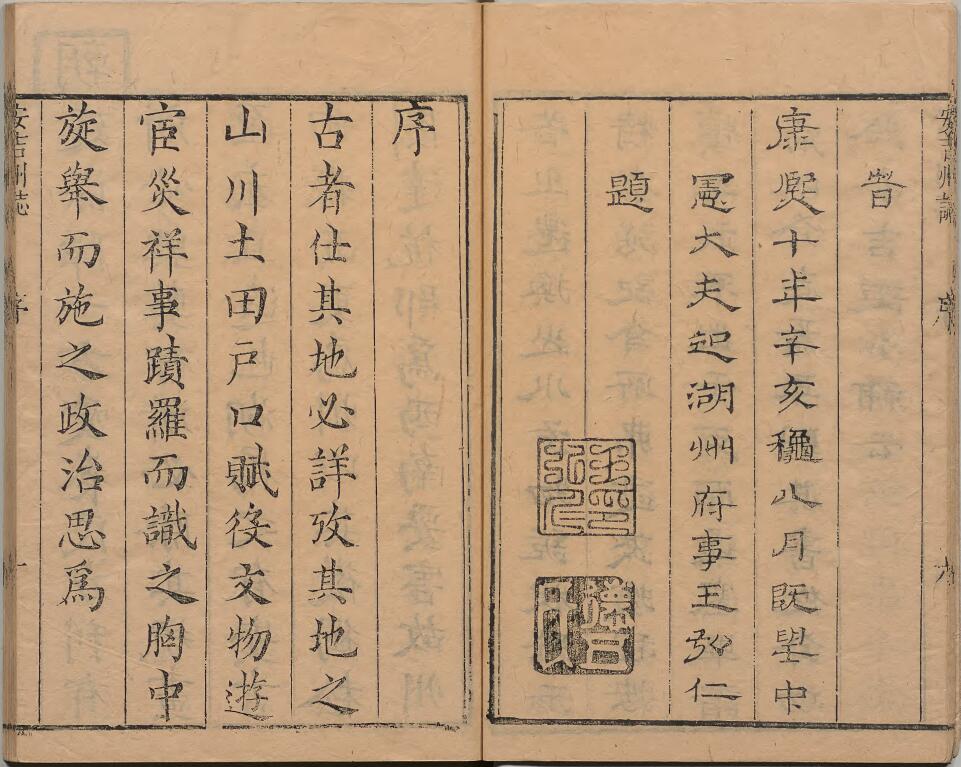 安吉州誌
序
九
時
康熙十年辛亥龝八月既望中
憲大夫知湖州府事王弘仁
題
序
古者仕其地必詳攷其地之
山川土田戶口賦役文物遊
宦災祥事蹟羅而識之胸中
旋舉而施之政治思爲
安吉州誌
序
一